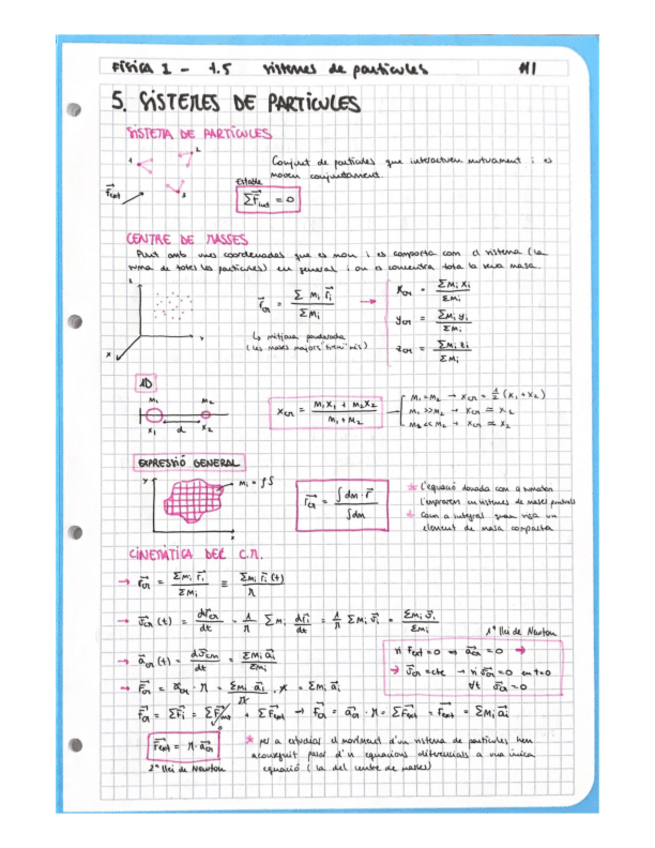 FÍSICA 1 - 1.5 sistemes de partícules #1
5. SISTEMES DE PARTÍCULES
SISTEMA DE PARTÍCULES
1 2 3
Conjunt de partícules que interactuen mutuament i es
mouen conjuntament.
Fext
Estable
ΣFint = 0
CENTRE DE MASSES
Punt amb unes coordenades que es mou i es comporta com el sistema (la
suma de totes les partícules) en general i on es concentra tota la seva massa.
rCM = Σ mi ri / Σ mi →
xCM = Σ mi xi / Σ mi
yCM = Σ mi yi / Σ mi
zCM = Σ mi zi / Σ mi
↳ mitjana ponderada
(les mases majors
z y x
1D
m1 m2
x1 d x2
xCM = m1x1 + m2x2 / m1 + m2
m1 = m2 → xCM = 1/2 (x1 + x2)
m1 >> m2 → xCM ≃ x1
m1 << m2 → xCM ≃ x2
EXPRESSIÓ GENERAL
y x
rCM = ∫ dm · r / ∫ dm
* l'equació donada com a sumatori
l'emprarem en sistemes de masses puntuals
* Com a integral quan sigui un
element de massa compacta
CINEMÀTICA DEL C.M.
→ rCM = Σ mi ri / Σ mi ≡ Σ mi ri (t) / M
→ vCM (t) = drCM / dt = 1/M Σ mi dri/dt = 1/M Σ mi vi = Σ mi vi / Σ mi
1ª llei de Newton
→ aCM (t) = dvCM / dt = Σ mi ai / Σ mi
si Fext = 0 ⇒ aCM = 0 →
→ vCM = cte → si vCM = 0 en t=0
∀t vCM = 0
→ FCM = aCM · M = Σ mi ai / M · M = Σ mi ai
FCM = ΣFi = ΣFint + ΣFext → FCM = aCM · M = ΣFext = Fext = Σ mi ai
Fext = M · aCM
2ª llei de Newton
* per a estudiar el moviment d'un sistema de partícules hem
aconseguit passar d'n equacions diferencials a una única
equació (la del centre de masses)